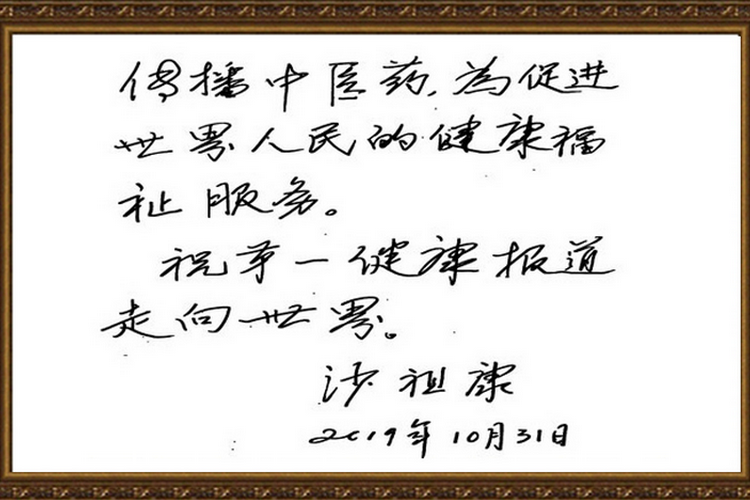 传播中医药,为促进
世界人民的健康福
祉服务。
祝第一健康报道
走向世界。
沙祖康
2019年10月31日